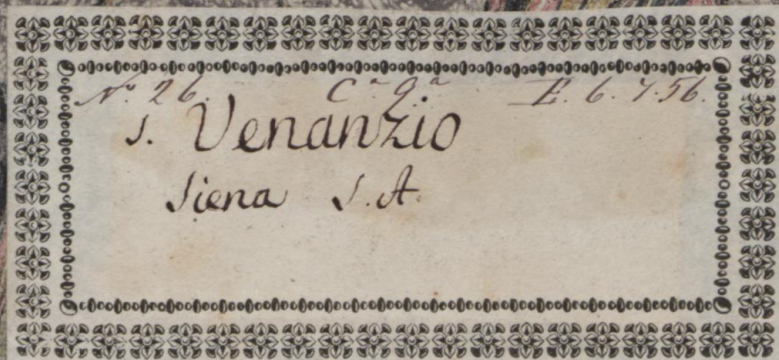 N.o 26. C.a 9.a E. 6. 7.56.
S. Venanzio
Siena S.A.